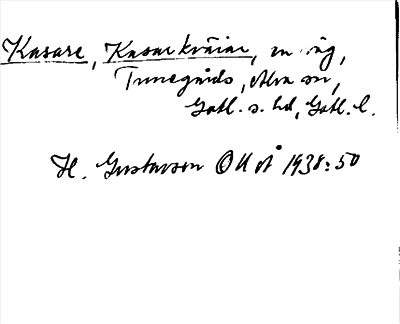 Kasare, Kasarkväiar, en äng,
Tunegårds, Alva sn,
Gotl. s. hd, Gotl. l.
H. Gustavson OUOÅ 1938:50